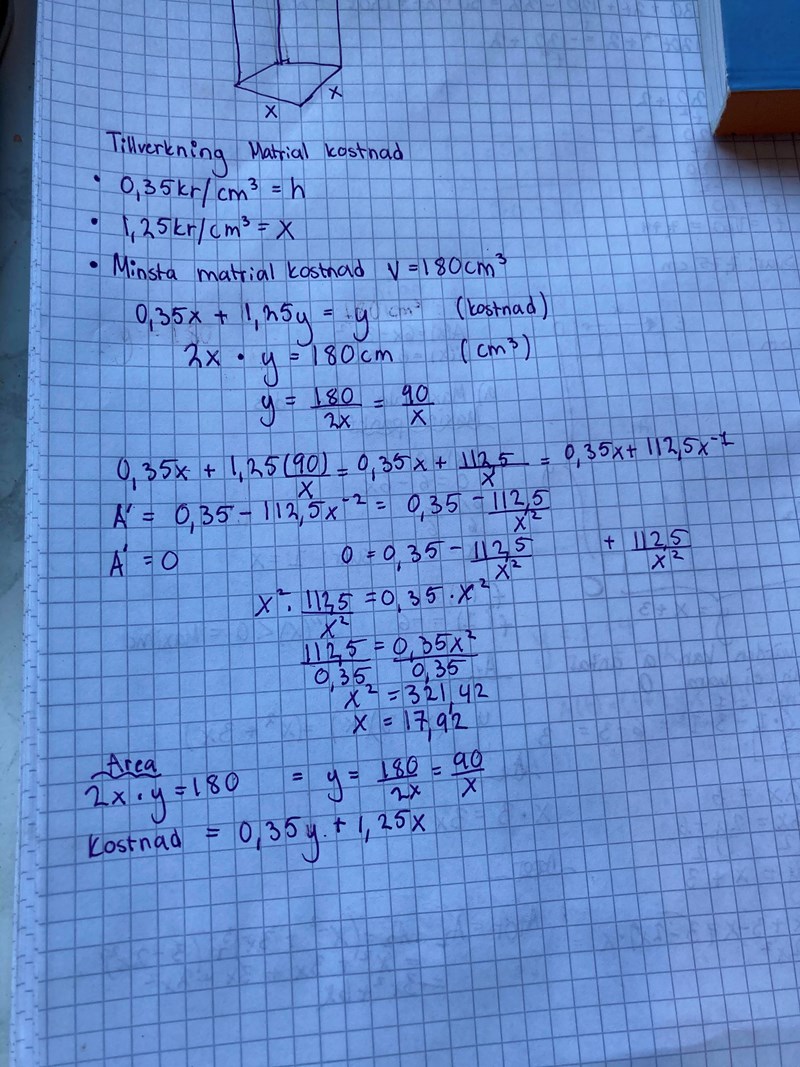 x
x
Tillverkning Matrial kostnad
• 0,35kr/cm³ = h
• 1,25kr/cm³ = x
• Minsta matrial kostnad V = 180cm³
0,35x + 1,25y = y (kostnad)
2x · y = 180cm (cm³)
y = 180/2x = 90/x
0,35x + 1,25(90)/x = 0,35x + 112,5/x = 0,35x + 112,5x⁻¹
A' = 0,35 - 112,5x⁻² = 0,35 - 112,5/x²
A' = 0 0 = 0,35 - 112,5/x² + 112,5/x²
x² · 112,5/x² = 0,35 · x²
112,5/0,35 = 0,35x²/0,35
x² = 321,42
x = 17,92
Area
2x · y = 180 = y = 180/2x = 90/x
kostnad = 0,35y + 1,25x